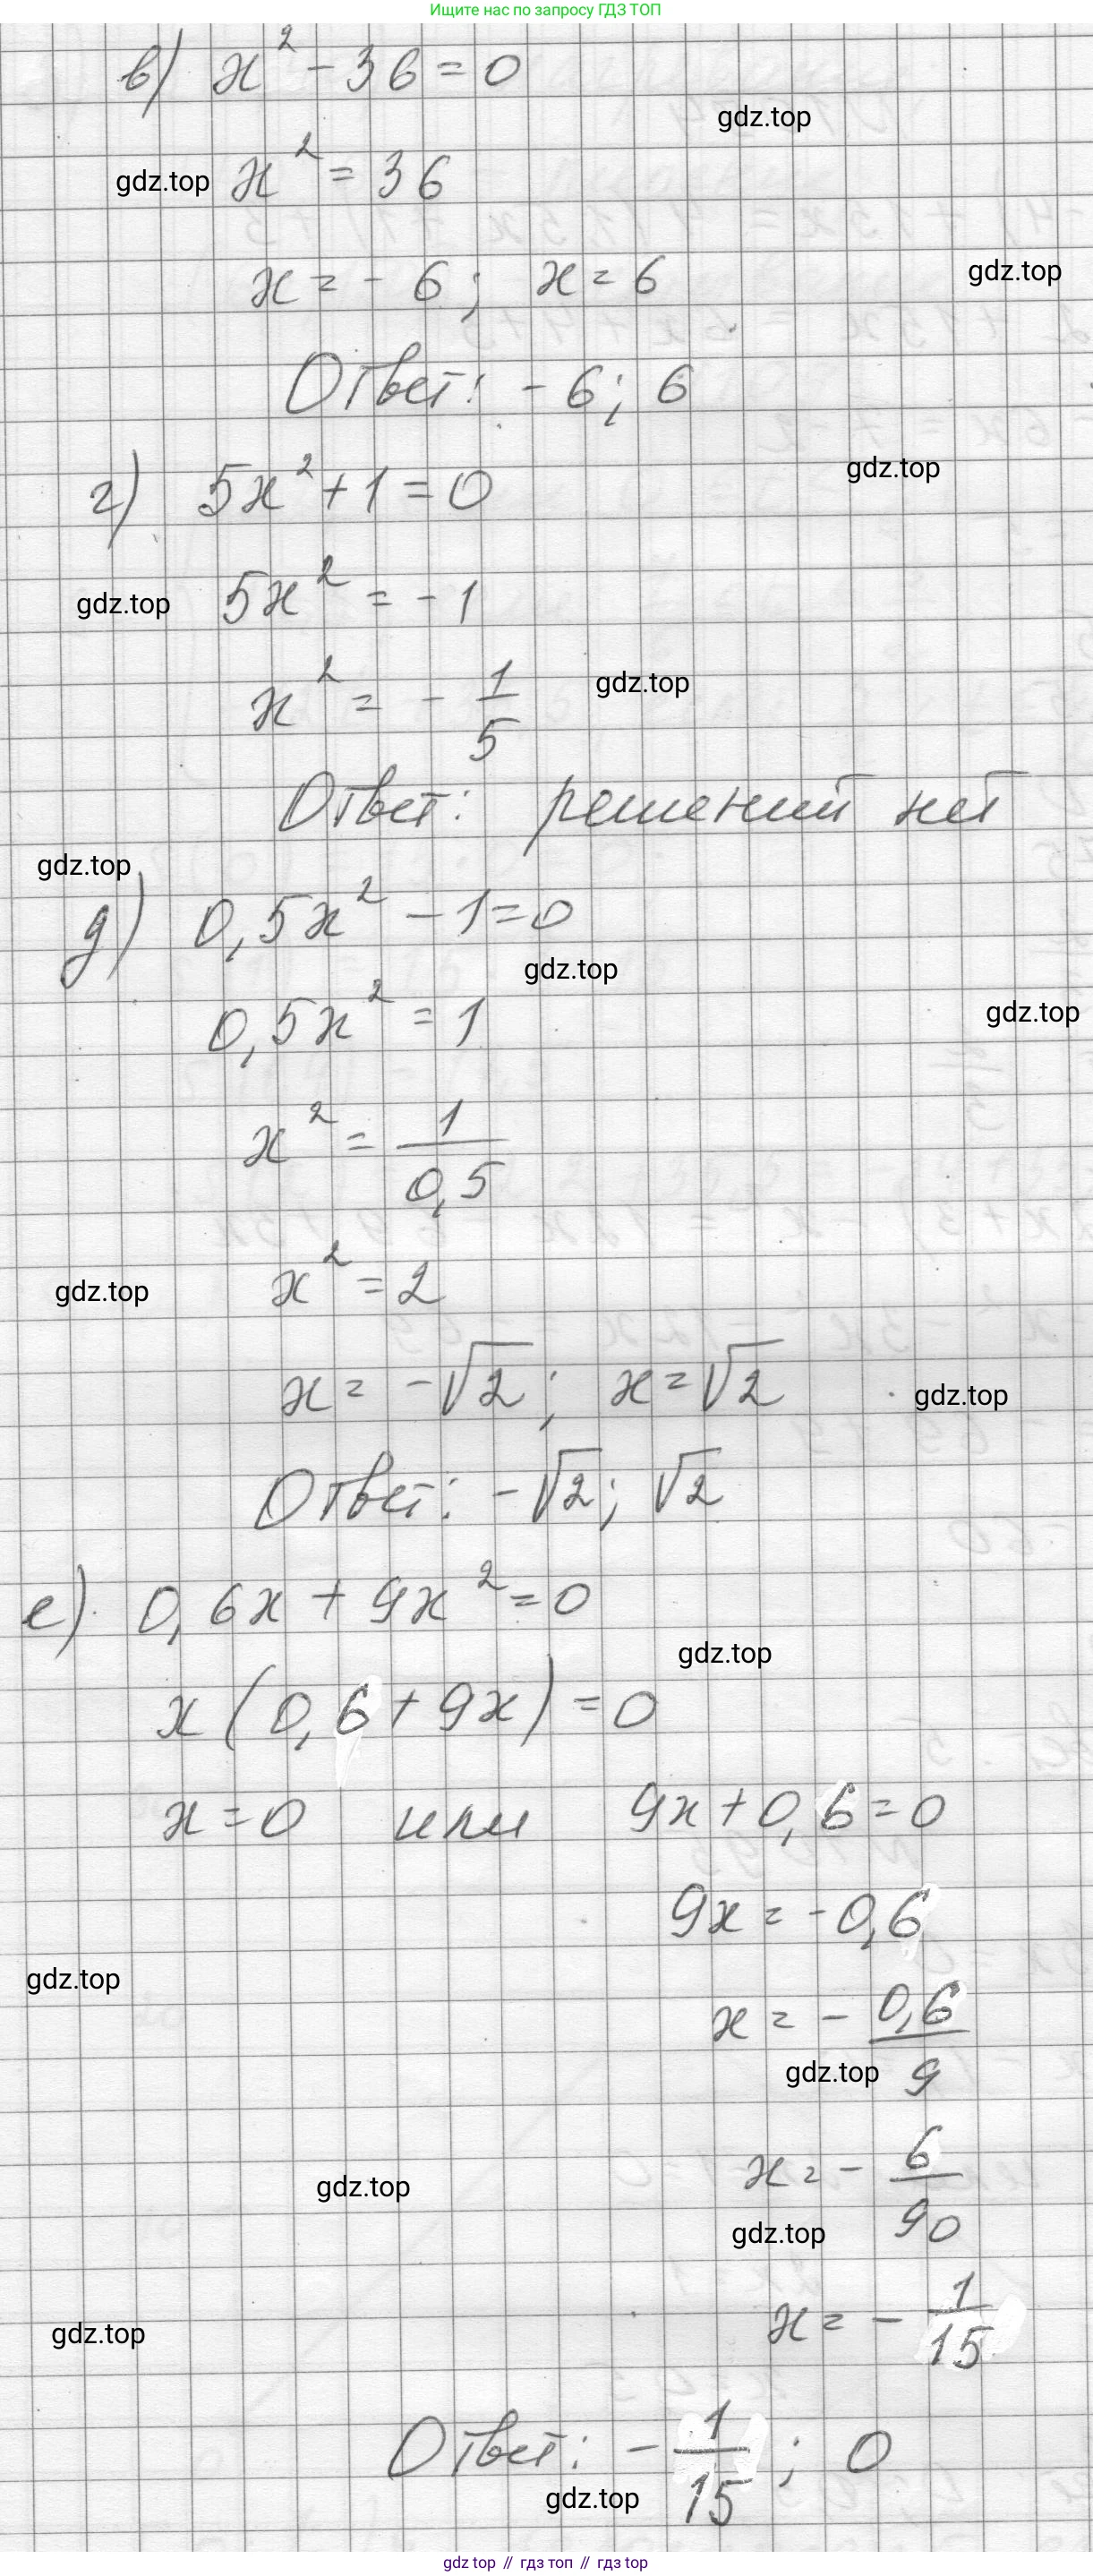 Ищите нас по запросу ГДЗ ТОП
в) x² - 36 = 0
gdz.top
gdz.top
x² = 36
gdz.top
x = - 6 ; x = 6
Ответ: - 6; 6
gdz.top
г) 5x² + 1 = 0
gdz.top
5x² = - 1
gdz.top
x² = - 1/5
Ответ: решений нет
gdz.top
д) 0,5x² - 1 = 0
gdz.top
gdz.top
0,5x² = 1
x² = 1/0,5
gdz.top
x² = 2
x = -√2 ; x = √2
gdz.top
Ответ: -√2; √2
е) 0,6x + 9x² = 0
gdz.top
x (0,6 + 9x) = 0
x = 0 или 9x + 0,6 = 0
9x = - 0,6
gdz.top
x = - 0,6/9
gdz.top
x = - 6/90
gdz.top
gdz.top
x = - 1/15
gdz.top
Ответ: - 1/15 ; 0
gdz.top
gdz top // гдз топ // гдз top